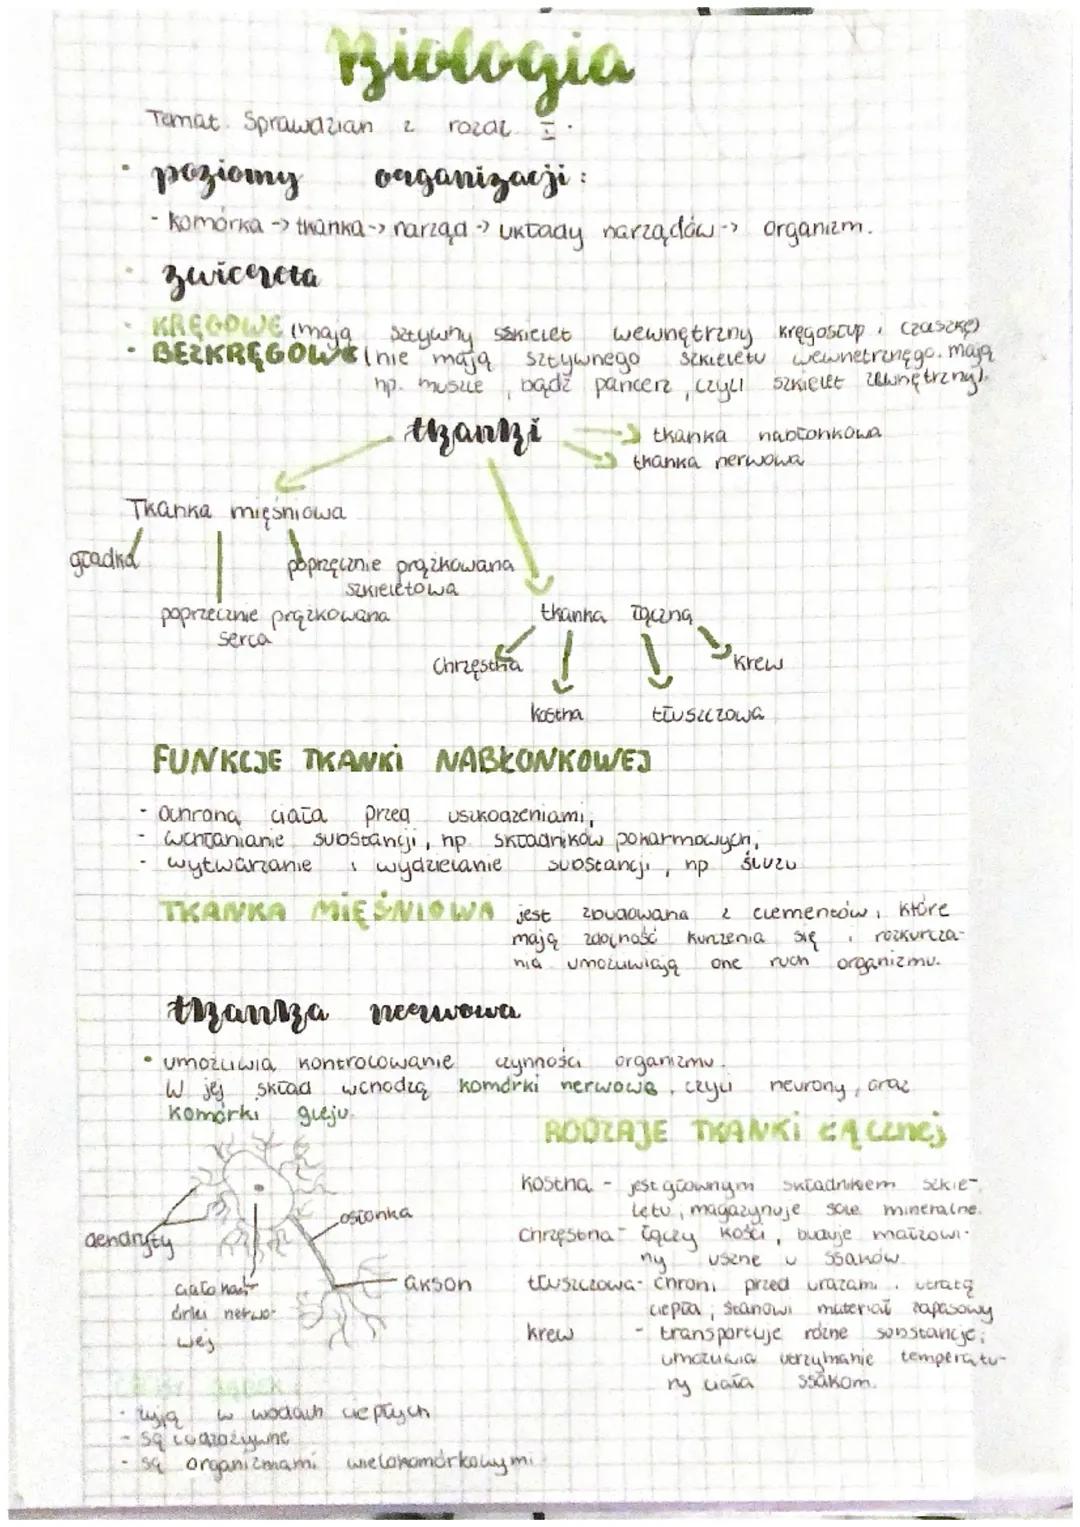 Biologia
Temat. Sprawdzian z rozdz. I.
• poziomy organizacji:
- komórka -> tkanka -> narząd -> układy narządów -> organizm.
• zwierzęta
• KRĘGOWE (mają sztywny szkielet wewnętrzny kręgosłup i czaszkę)
• BEZKRĘGOWE (nie mają sztywnego szkieletu wewnętrznego. mają
np. muszle, bądź pancerz, czyli szkielet zewnętrzny).
tkanki
tkanka nabłonkowa
tkanka nerwowa
Tkanka mięśniowa
gładka
poprzęcznie prążkowana
szkieletowa
poprzecznie prążkowana
serca
tkanka łączna
Chrzęstna
krew
kostna
tłuszczowa
FUNKCJE TKANKI NABŁONKOWEJ
- ochrona ciała przed uszkodzeniami,
- wchłanianie substancji, np. składników pokarmowych,
- wytwarzanie i wydzielanie substancji, np śluzu
TKANKA MIĘŚNIOWA jest zbudowana z elementów, które
mają zdolność kurczenia się i rozkurcza-
nia umożliwiają one ruch organizmu.
tkanka nerwowa
• umożliwia kontrolowanie czynności organizmu.
W jej skład wchodzą komórki nerwowe, czyli neurony, oraz
komórki gleju.
RODZAJE TKANKI ŁĄCZNEJ
kostna - jest głównym składnikem szkie-
letu, magazynuje sole mineralne.
chrzęstna - łączy kości, buduje małżowi-
ny uszne u ssaków.
tłuszczowa - chroni przed urazami i utratą
ciepła, stanowi materiał zapasowy
krew - transportuje różne substancje;
umożliwia utrzymanie temperatu-
ry ciała ssakom.
dendryty
osłonka
ciało kom-
órki nerwo-
wej
akson
- żyją w wodach ciepłych
- są cudzożywne
- są organizmami wielokomórkowymi